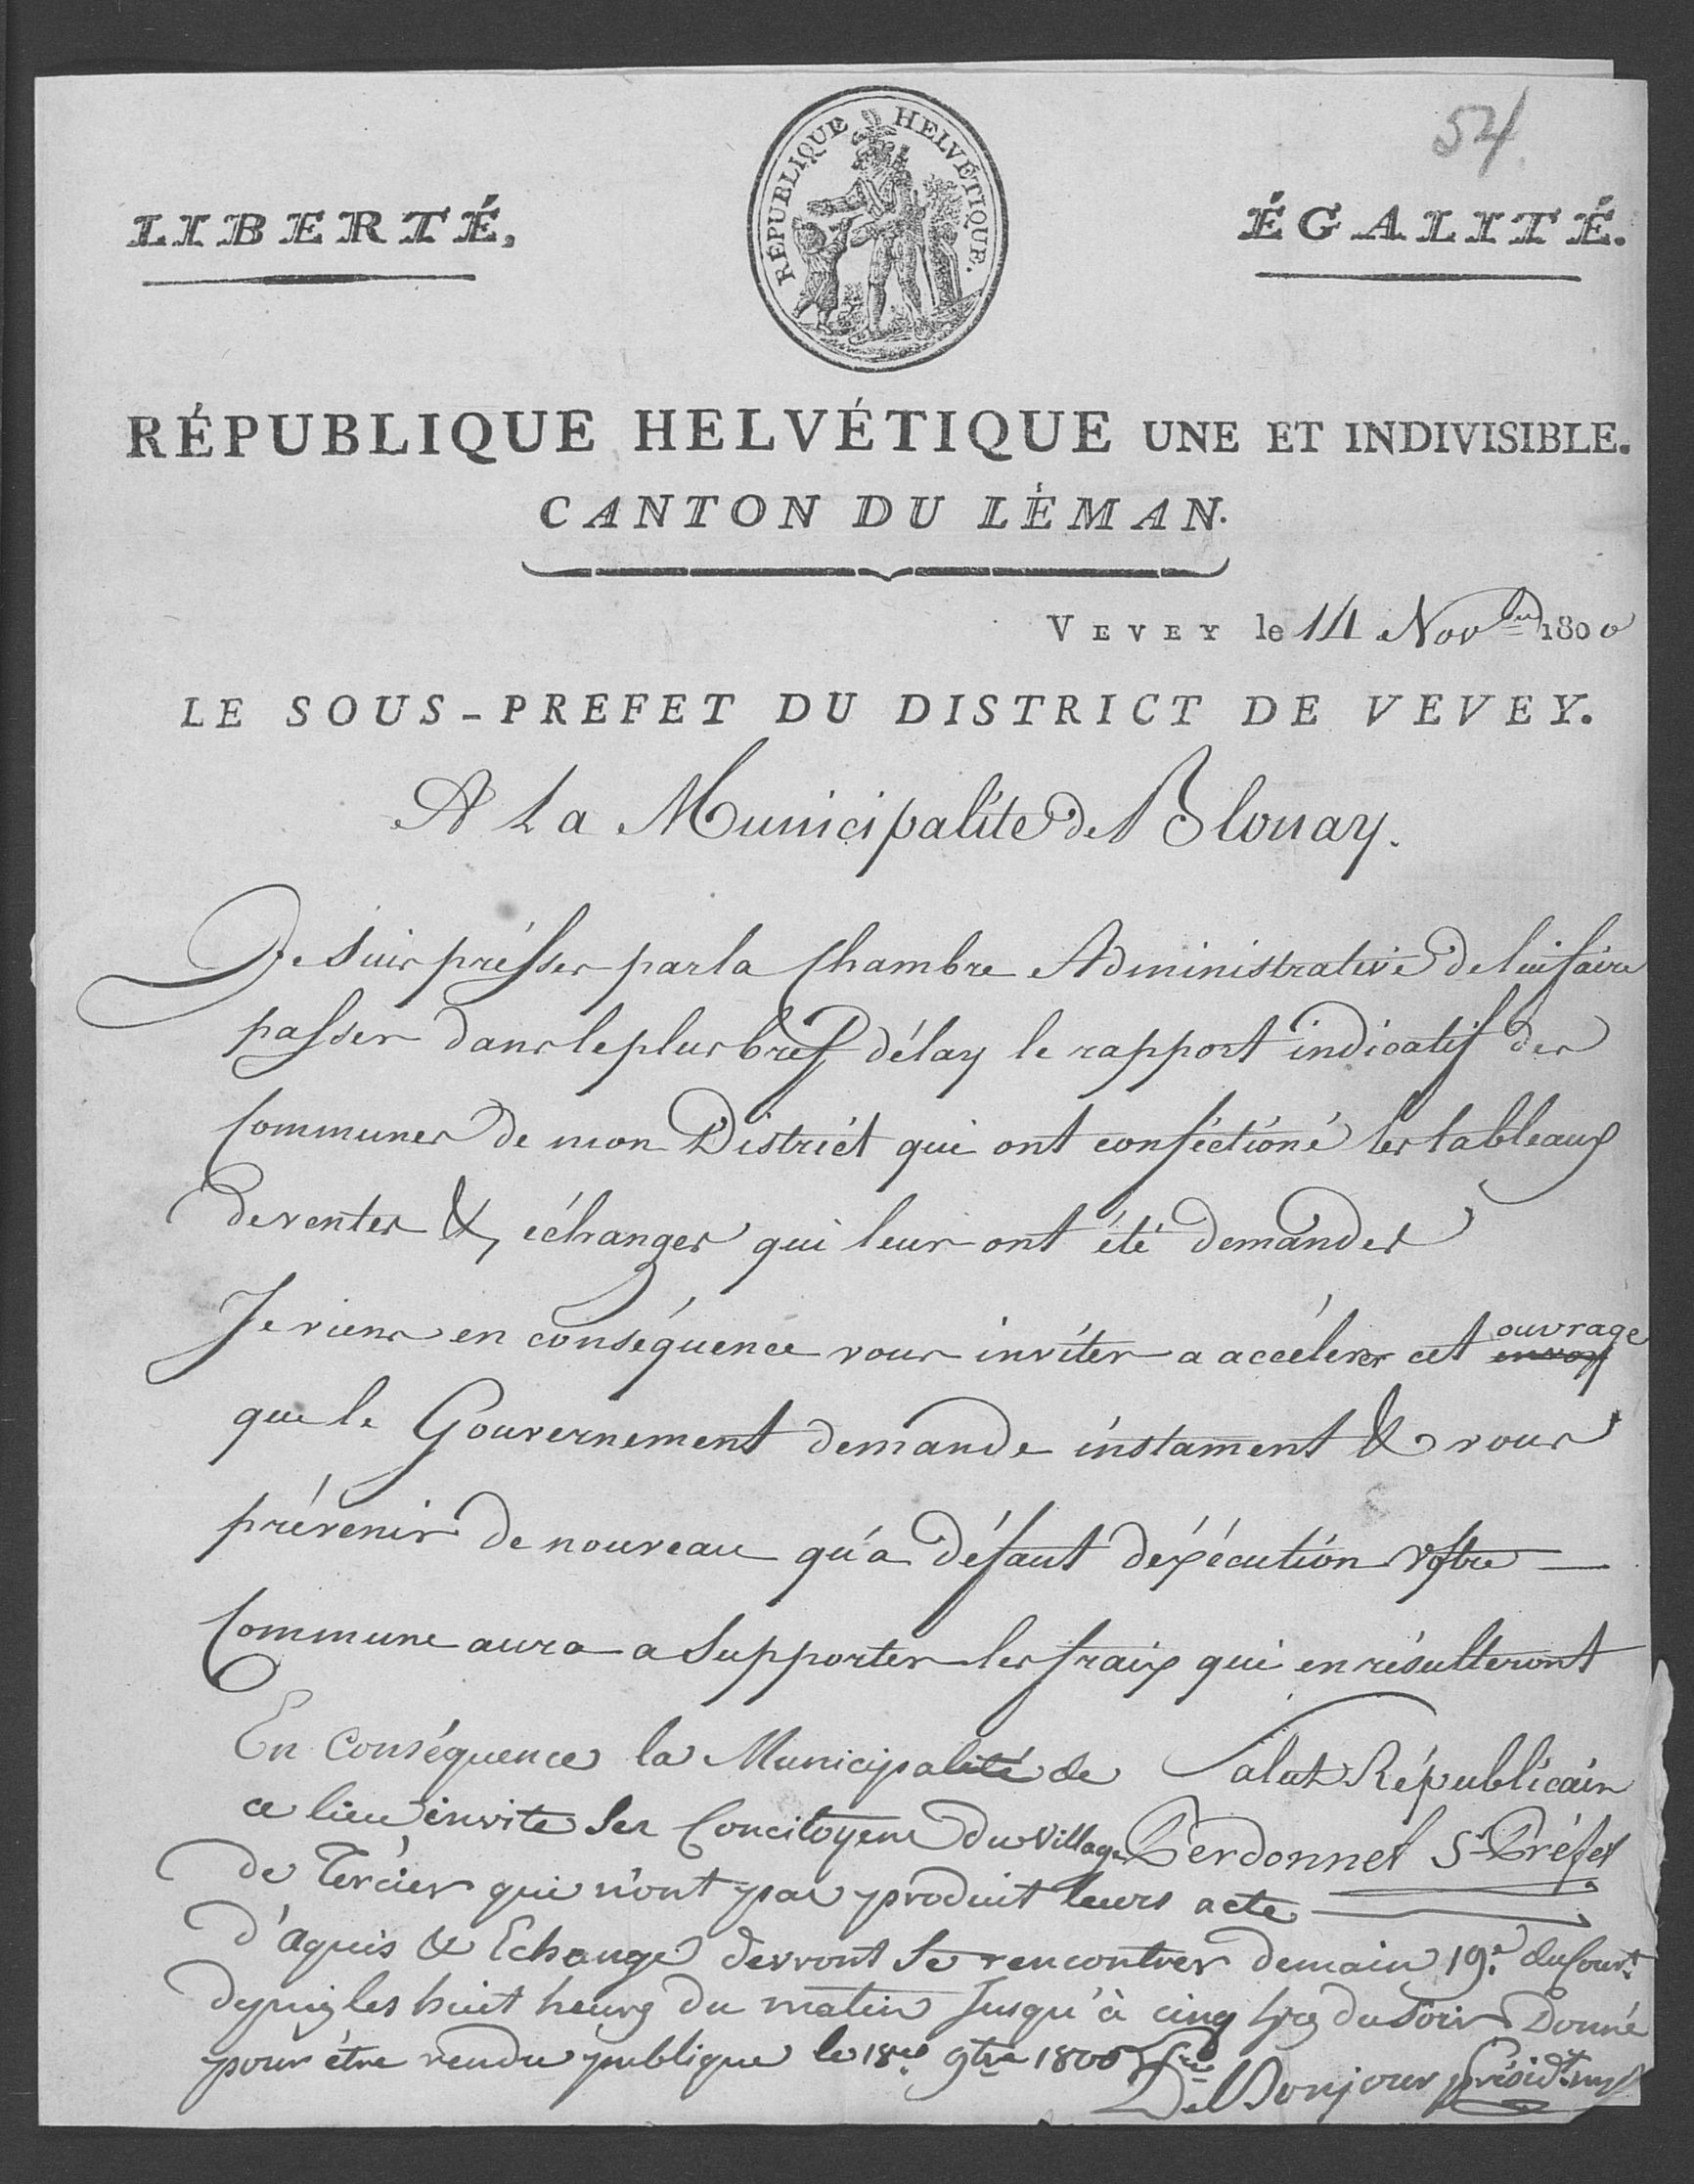 54
RÉPUBLIQUE HELVÉTIQUE.
LIBERTÉ, ÉGALITÉ.
RÉPUBLIQUE HELVÉTIQUE UNE ET INDIVISIBLE.
CANTON DU LÉMAN.
VEVEY le 14 Novbre 1800
LE SOUS-PREFET DU DISTRICT DE VEVEY.
A La Municipalité de Blonay.
Je suis présser par la Chambre Administrative de lui faire
passer dans le plus bref délay le rapport indicatif des
Communes de mon District qui ont conféctioné les tableaux
de ventes & échanges qui leur ont été demandes
Je viens en conséquence vous inviter a accélerer cet ouvrage
que le Gouvernement demande instament & vous
prévenir de nouveau qu'a défaut d'exécution votre
Commune aura a Supporter les fraix qui en résulteront
Salut Républicain
Perdonnet Ss Préfet
En Conséquence la Municipalité de
ce lieu invite Ses Concitoyens du Village
de Tercier qui n'ont pas produit leurs acte
d'aquis & Echange devront Se rencontrer demain 19e du Court
depuis les huit heures du matin Jusqu'à cinq hres du Soir Donné
pour être rendu publique le 18me 9bre 1800
De Bonjour présidt